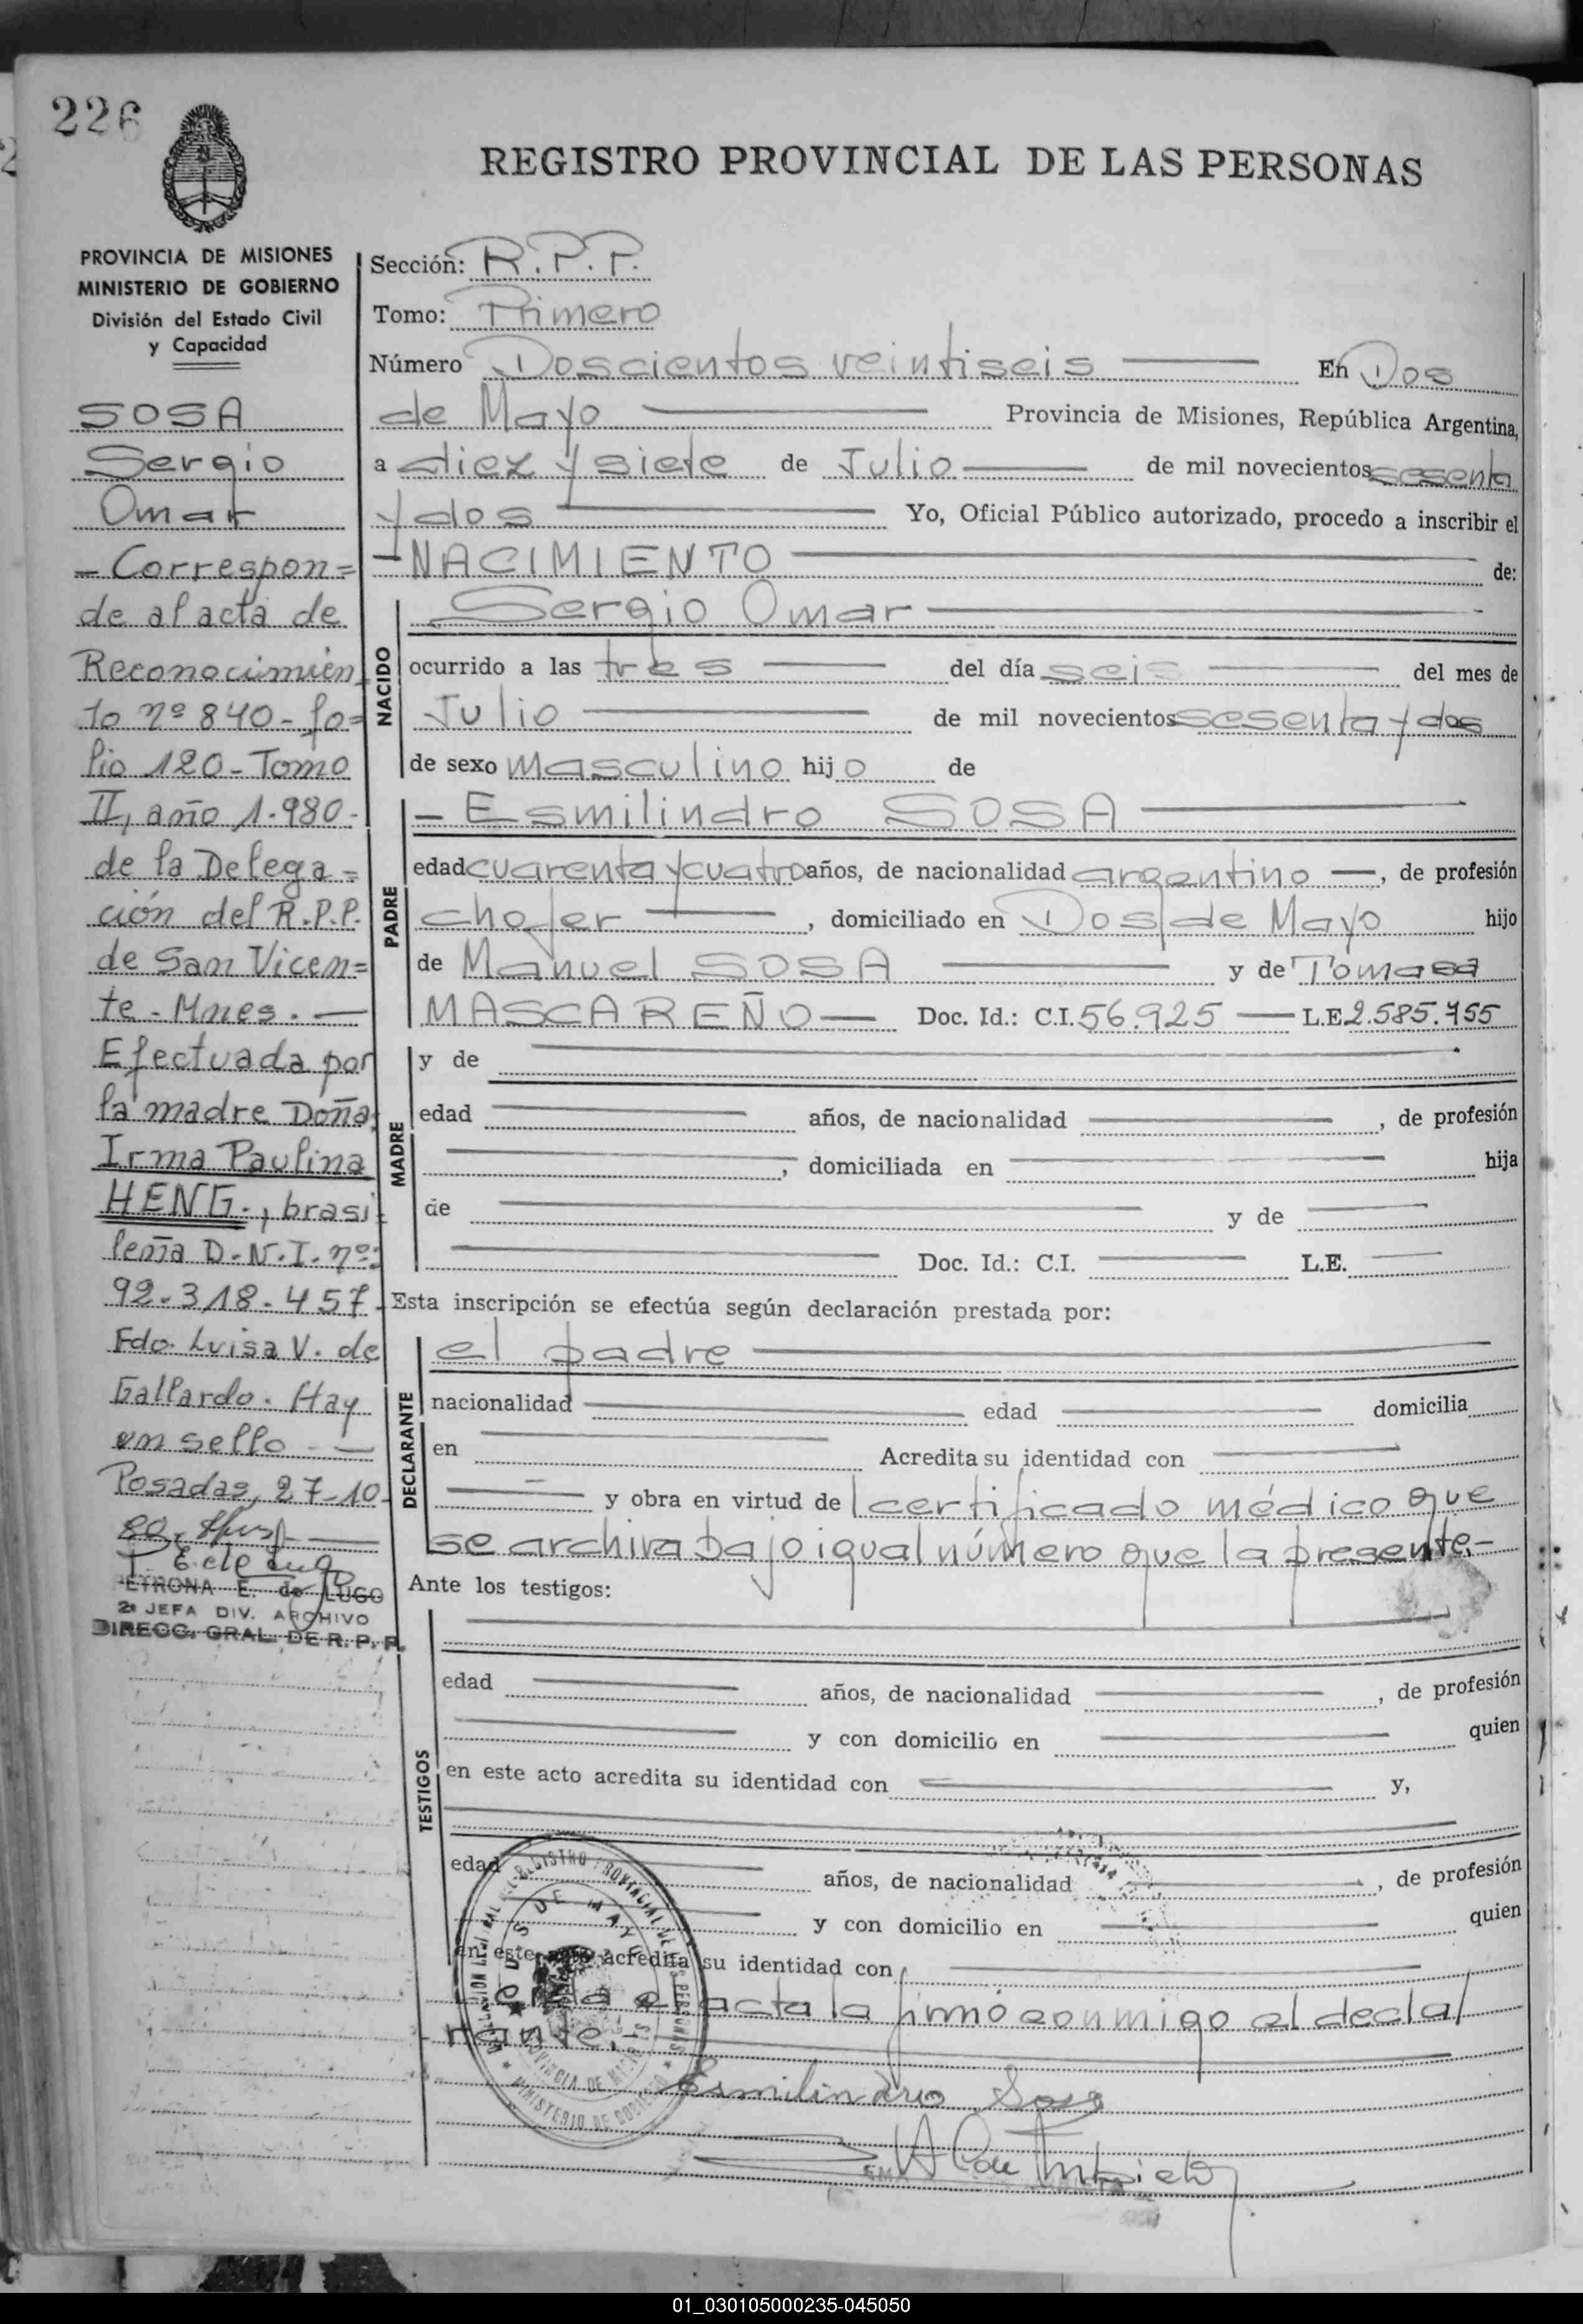 226
REGISTRO PROVINCIAL DE LAS PERSONAS
PROVINCIA DE MISIONES
MINISTERIO DE GOBIERNO
División del Estado Civil
y Capacidad
SOSA
Sergio
Omar
- Correspon=
de al acta de
Reconocimien
to nº 840- fo=
lio 120- Tomo
II, año 1.980-
de la Delega=
ción del R.P.P.
de San Vicen=
te - Mnes. -
Efectuada por
la madre Doña
Irma Paulina
HENG., brasi=
leña D.N.I. nº:
92-318-457-
Fdo. Luisa V. de
Gallardo. Hay
un sello -
Posadas, 27-10-
80-
PETRONA E. de LUGO
2ª JEFA DIV. ARCHIVO
DIRECC. GRAL. DE R. P. P.
Sección: R.P.P.
Tomo: Primero
Número Doscientos veintiseis En Dos
de Mayo Provincia de Misiones, República Argentina,
a diez y siete de Julio de mil novecientos sesenta
y dos Yo, Oficial Público autorizado, procedo a inscribir el
-NACIMIENTO de:
NACIDO
Sergio Omar
ocurrido a las tres del día seis del mes de
Julio de mil novecientos sesenta y dos
de sexo masculino hijo de
PADRE
- Esmilindro SOSA
edad cuarenta y cuatro años, de nacionalidad argentino -, de profesión
chofer , domiciliado en Dos de Mayo hijo
de Manuel SOSA y de Tomasa
MASCAREÑO- Doc. Id.: C.I. 56.925 L.E 2.585.755
MADRE
y de
edad años, de nacionalidad , de profesión
, domiciliada en hija
de y de
Doc. Id.: C.I. L.E.
Esta inscripción se efectúa según declaración prestada por:
DECLARANTE
el padre
nacionalidad edad domicilia
en Acredita su identidad con
y obra en virtud de l certificado médico que
se archiva bajo igual número que la presente.-
Ante los testigos:
TESTIGOS
edad años, de nacionalidad , de profesión
y con domicilio en quien
en este acto acredita su identidad con y,
edad años, de nacionalidad , de profesión
y con domicilio en quien
en este acto acredita su identidad con
el acta la firmó conmigo el decla/
rante.
REGISTRO PROVINCIAL DE LAS PERSONAS
DOS DE MAYO
PROVINCIA DE MISIONES
MINISTERIO DE GOBIERNO
Esmilindro Sosa
01_030105000235-045050